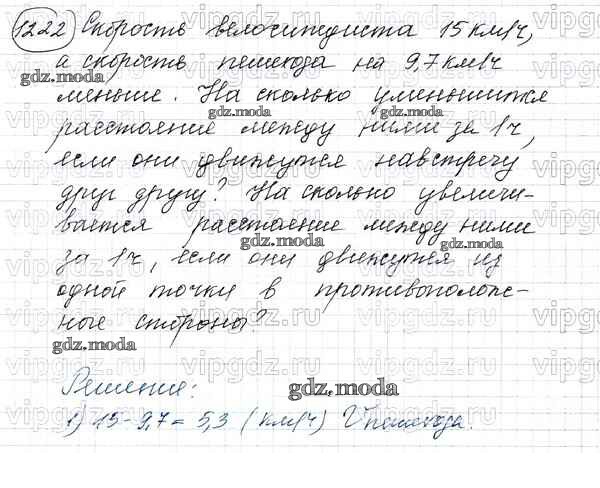 1222 Скорость велосипедиста 15 км/ч,
а скорость пешехода на 9,7 км/ч
gdz.moda
меньше. На сколько уменьшится
gdz.moda gdz.moda
расстояние между ними за 1 ч,
если они движутся навстречу
друг другу? На сколько увеличи-
вается расстояние между ними
gdz.moda gdz.moda
за 1 ч, если они движутся из
одной точки в противополож-
ные стороны?
gdz.moda
Решение:
gdz.moda
1) 15 - 9,7 = 5,3 (км/ч) V пешехода.
vipgdz.ru